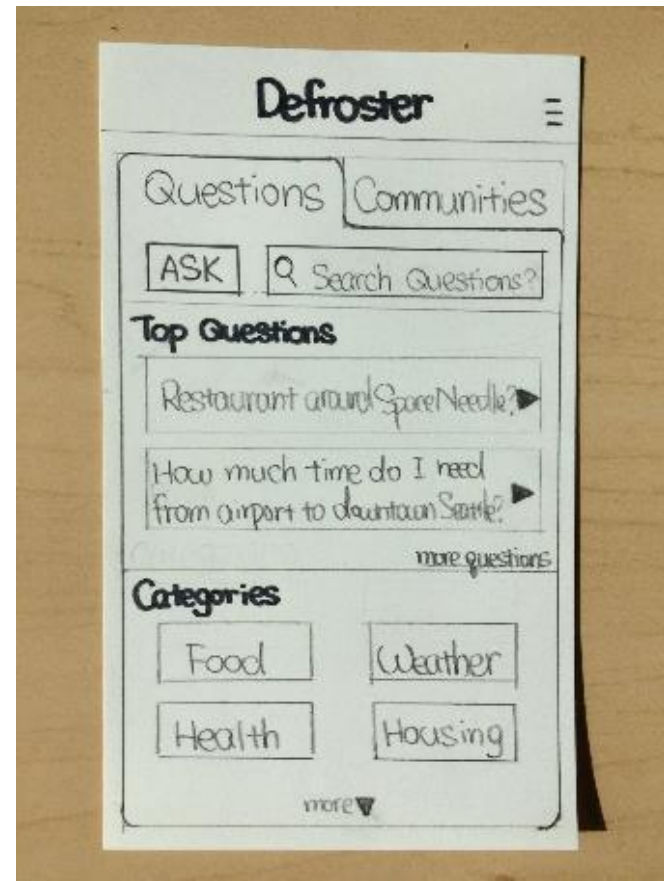 Defroster
Questions Communities
ASK Search Questions?
Top Questions
Restaurant around Space Needle?
How much time do I need
from airport to downtown Seattle?
more questions
Categories
Food Weather
Health Housing
more